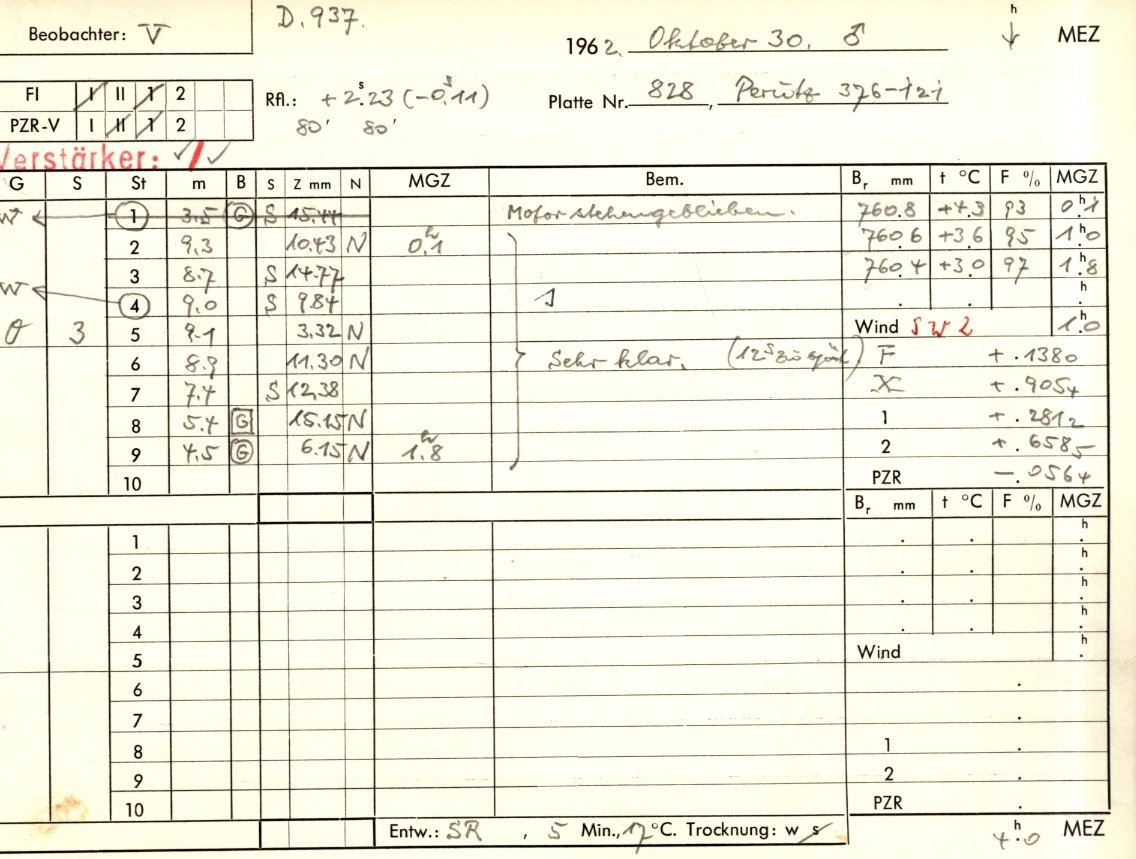 Beobachter: V
D. 937.
1962. Oktober 30. ♂
h ↓ MEZ
FI I II 1 2
PZR-V I II 1 2
Rfl.: + 2ˢ.23 (-0ˢ.11)
80' 80'
Platte Nr. 828, Perutz 376-121
Verstärker: ✓ / ✓
G S St m B S Z mm N MGZ Bem. Bᵣ mm t °C F % MGZ
w 1 3.5 G S 15.44 Motor stehengeblieben. 760.8 +4.3 93 0ʰ.1
2 9.3 10.43 N 0ʰ.1 760.6 +3.6 95 1ʰ.0
3 8.7 S 14.77 760.4 +3.0 97 1ʰ.8
w 4 9.0 S 9.84 1 . . h .
0 3 5 9.1 3.32 N Wind SW 2 1ʰ.0
6 8.9 11.30 N Sehr klar. (12ˢ zu spät) F + .1380
7 7.4 S 12.38 X + .9054
8 5.4 G 15.15 N 1 + .2812
9 4.5 G 6.15 N 1ʰ.8 2 + .6585
10 PZR - .0564
Bᵣ mm t °C F % MGZ
1 . . h .
2 . . h .
3 . . h .
4 . . h .
5 Wind h .
6 .
7 .
8 1 .
9 2 .
10 PZR .
Entw.: SR , 5 Min., 17 °C. Trocknung: w s
4ʰ.0 MEZ